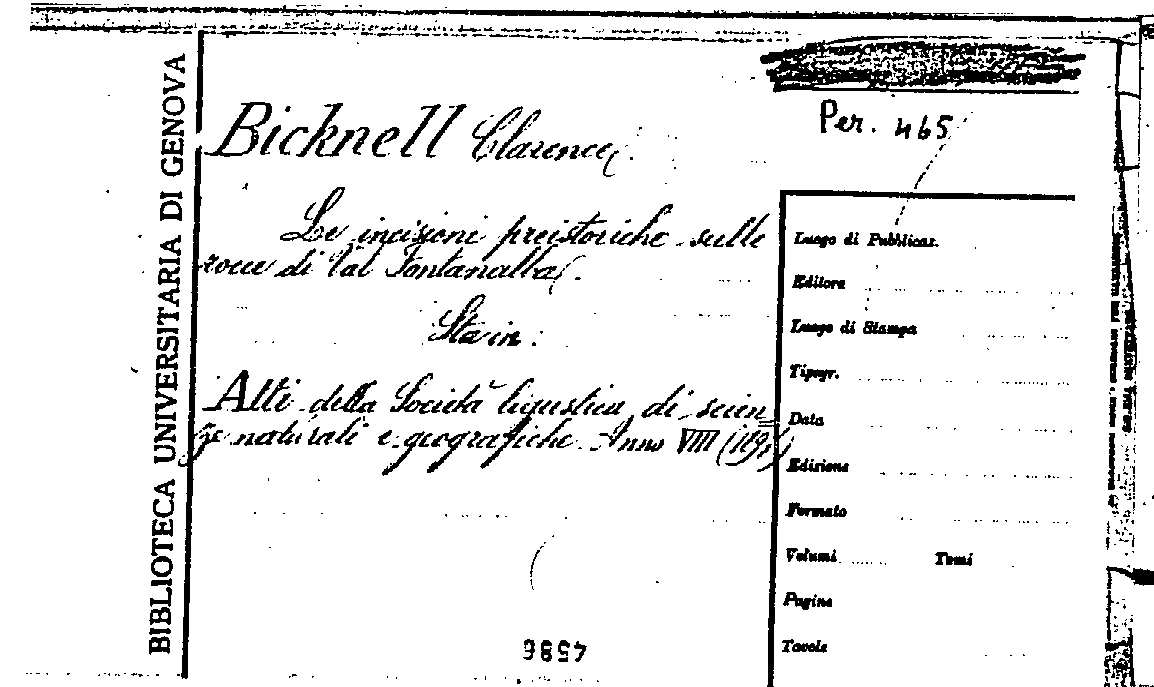 BIBLIOTECA UNIVERSITARIA DI GENOVA
Per. 465
Bicknell Clarence
Le incisioni preistoriche sulle
rocce di Val Fontanalba.
Sta in:
Atti della Società ligustica di scien
ze naturali e geografiche. Anno VIII
Luogo di Pubblicaz.
Editore
Luogo di Stampa
Tipogr.
Data
Edizione
Formato
Volumi Tomi
Pagine
Tavole
4586